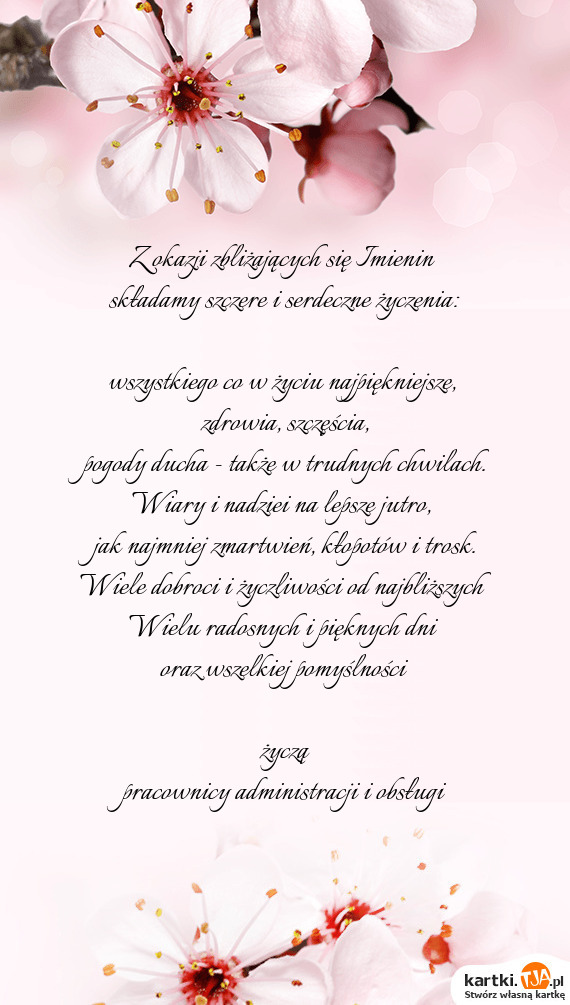 Z okazji zbliżających się Imienin
składamy szczere i serdeczne życzenia:
wszystkiego co w życiu najpiękniejsze,
zdrowia, szczęścia,
pogody ducha - także w trudnych chwilach.
Wiary i nadziei na lepsze jutro,
jak najmniej zmartwień, kłopotów i trosk.
Wiele dobroci i życzliwości od najbliższych
Wielu radosnych i pięknych dni
oraz wszelkiej pomyślności
życzą
pracownicy administracji i obsługi
kartki.TJA.pl
Stwórz własną kartkę